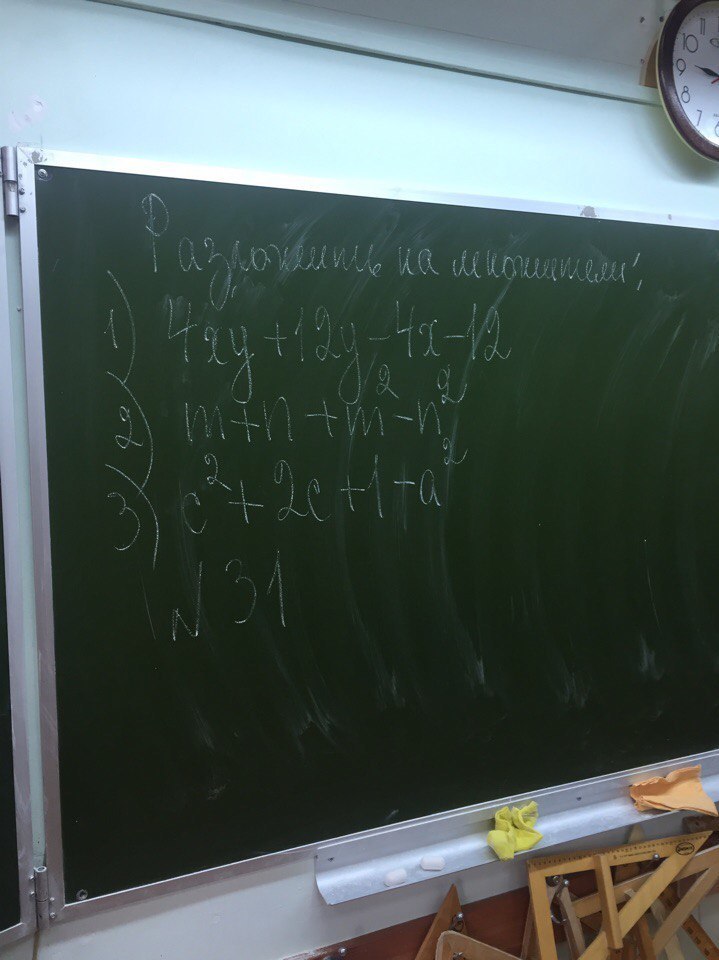 Разложить на множители:
1) 4xy+12y-4x-12
2) m+n+m²-n²
3) c²+2c+1-a²
N 31
10
11
9
8
7